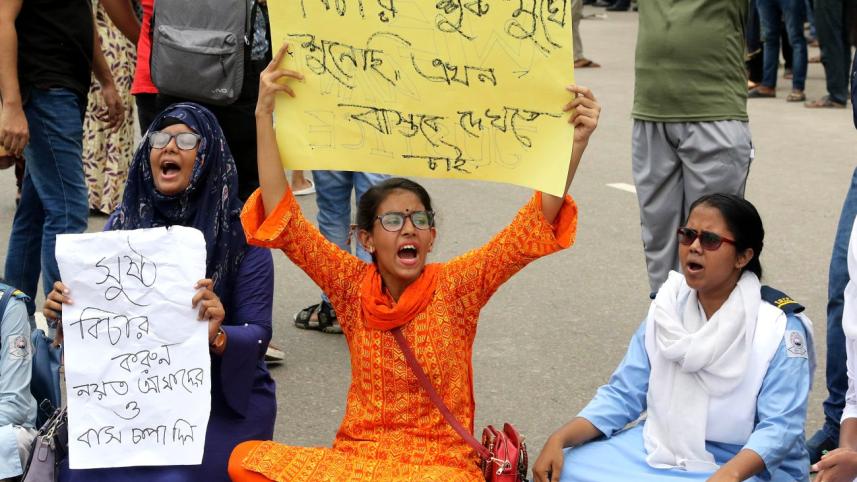 বিচার শুধু মুখে
শুনেছি, এখন
বাস্তবে দেখতে
চাই
সুষ্ঠ
বিচার
করুন
নয়ত আমাদের
ও
বাস চাপা দিন